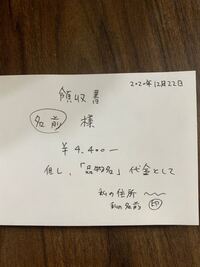 2020年12月22日
領収書
名前 様
¥4,400ー
但し、「品物名」代金として
私の住所 〜〜
私の名前 印